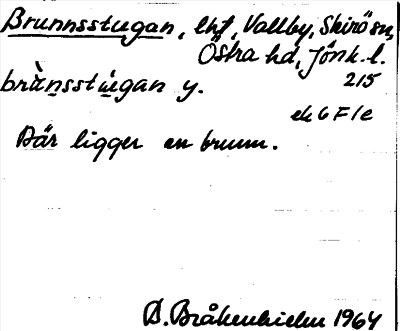 Brunnsstugan, lht, Vallby, Skirö sn,
Östra hd, Jönk. l.
215
brùnsstùgan y.
ek 6 F 1 e
Där ligger en brunn.
B. Bråkenhielm 1964